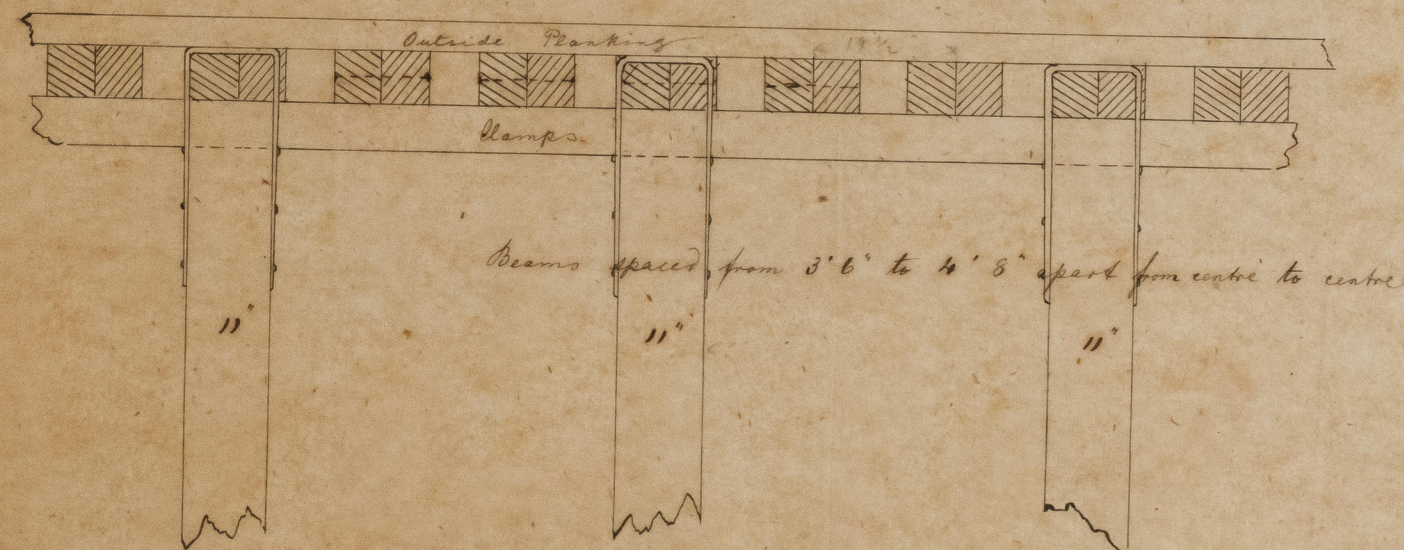 Outside Planking
Clamps
Beams spaced from 3' 6" to 4' 8" apart from centre to centre
11"
11"
11"